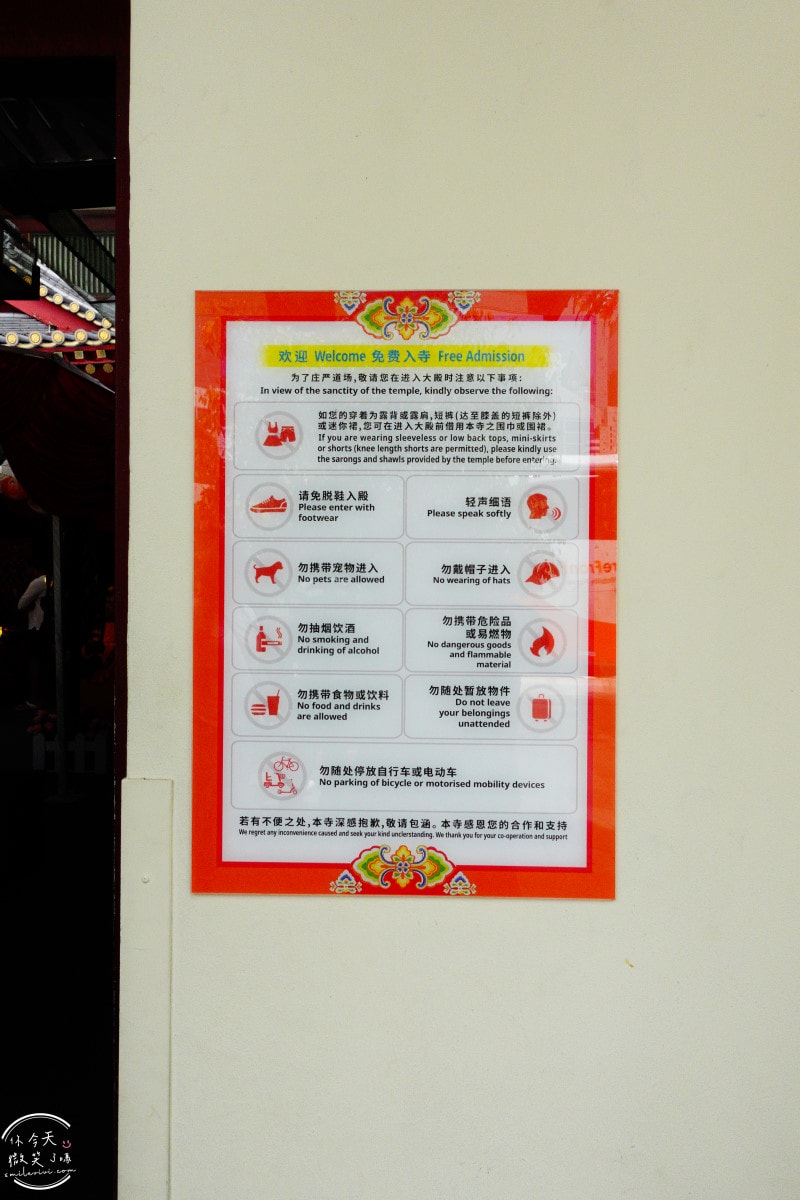 欢迎 Welcome 免费入寺 Free Admission
为了庄严道场,敬请您在进入大殿时注意以下事项:
In view of the sanctity of the temple, kindly observe the following:
如您的穿着为露背或露肩,短裤(达至膝盖的短裤除外)
或迷你裙,您可在进入大殿前借用本寺之围巾或围裙。
If you are wearing sleeveless or low back tops, mini-skirts
or shorts (knee length shorts are permitted), please kindly use
the sarongs and shawls provided by the temple before entering.
请免脱鞋入殿
Please enter with
footwear
轻声细语
Please speak softly
勿携带宠物进入
No pets are allowed
勿戴帽子进入
No wearing of hats
勿抽烟饮酒
No smoking and
drinking of alcohol
勿携带危险品
或易燃物
No dangerous goods
and flammable
material
勿携带食物或饮料
No food and drinks
are allowed
勿随处暂放物件
Do not leave
your belongings
unattended
勿随处停放自行车或电动车
No parking of bicycle or motorised mobility devices
若有不便之处,本寺深感抱歉,敬请包涵。本寺感恩您的合作和支持
We regret any inconvenience caused and seek your kind unclerstanding. We thank you for your co-operation and support
你今天
微笑了嗎
smilevivi.com